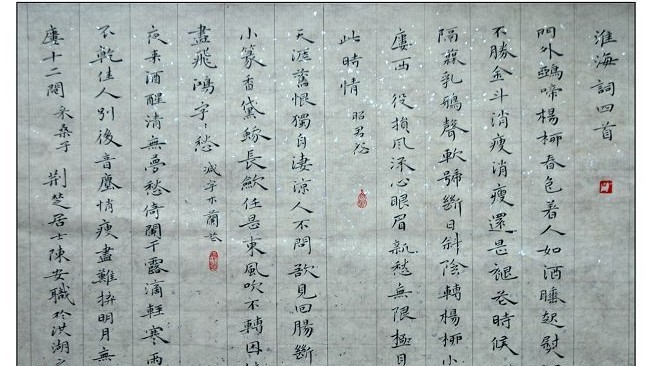 淮海詞四首
門外鵶啼楊柳春色着人如酒睡起熨
不勝金斗消瘦消瘦還是褪花時候
隔葉乳鵶聲軟號斷日斜陰轉楊柳小
廔西役損風流心眼眉新愁無限極目
此時情 昭君怨
天涯舊恨獨自凄涼人不問欲見回腸斷
小篆香黛蛾長斂任是東風吹不轉困
盡飛鴻字〻愁 減字木蘭花
夜来酒醒清無夢愁倚闌干露滴輕寒雨
不乾佳人別後音塵悄瘦盡難拚明月無
廔十二閑 采桑子 荆芝居士陳安職於洪湖